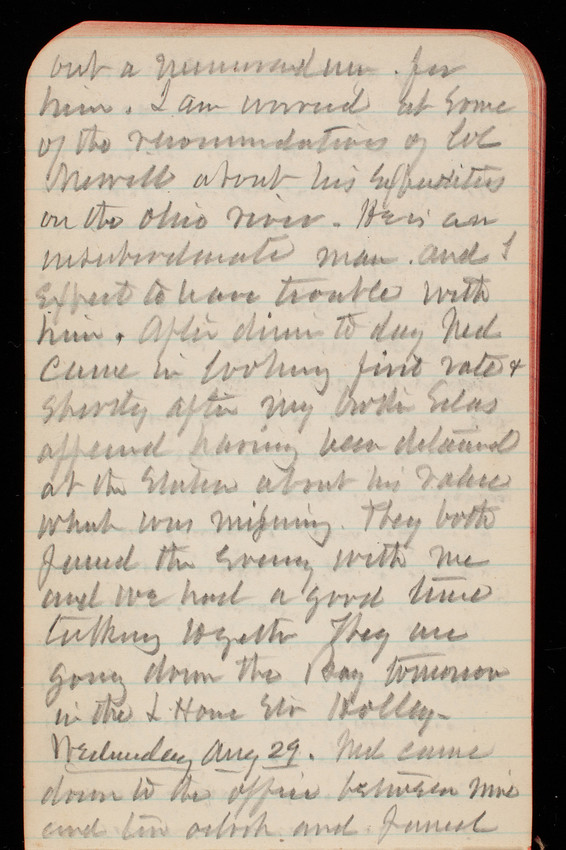 out a memorandum for
him. I am worried at some
of the recommendations of Col
Merrill about his
on the Ohio river. He is an
insubordinate man and I
Expect to have trouble with
him. After dinner to day Ned
came in looking first rate &
shortly after my brother Silas
appeared having been detained
at the Station about his valise
which was missing. They both
passed the evening with me
and we had a good time
talking together They are
going down the Bay tomorrow
in the L House Str Holly -
Wednesday Aug 29. Ned came
down to the office between nine
and ten oclock and